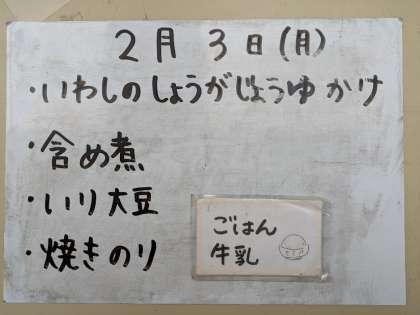 2月 3日(月)
・いわしのしょうがじょうゆかけ
・含め煮
・いり大豆
・焼きのり
ごはん
牛乳